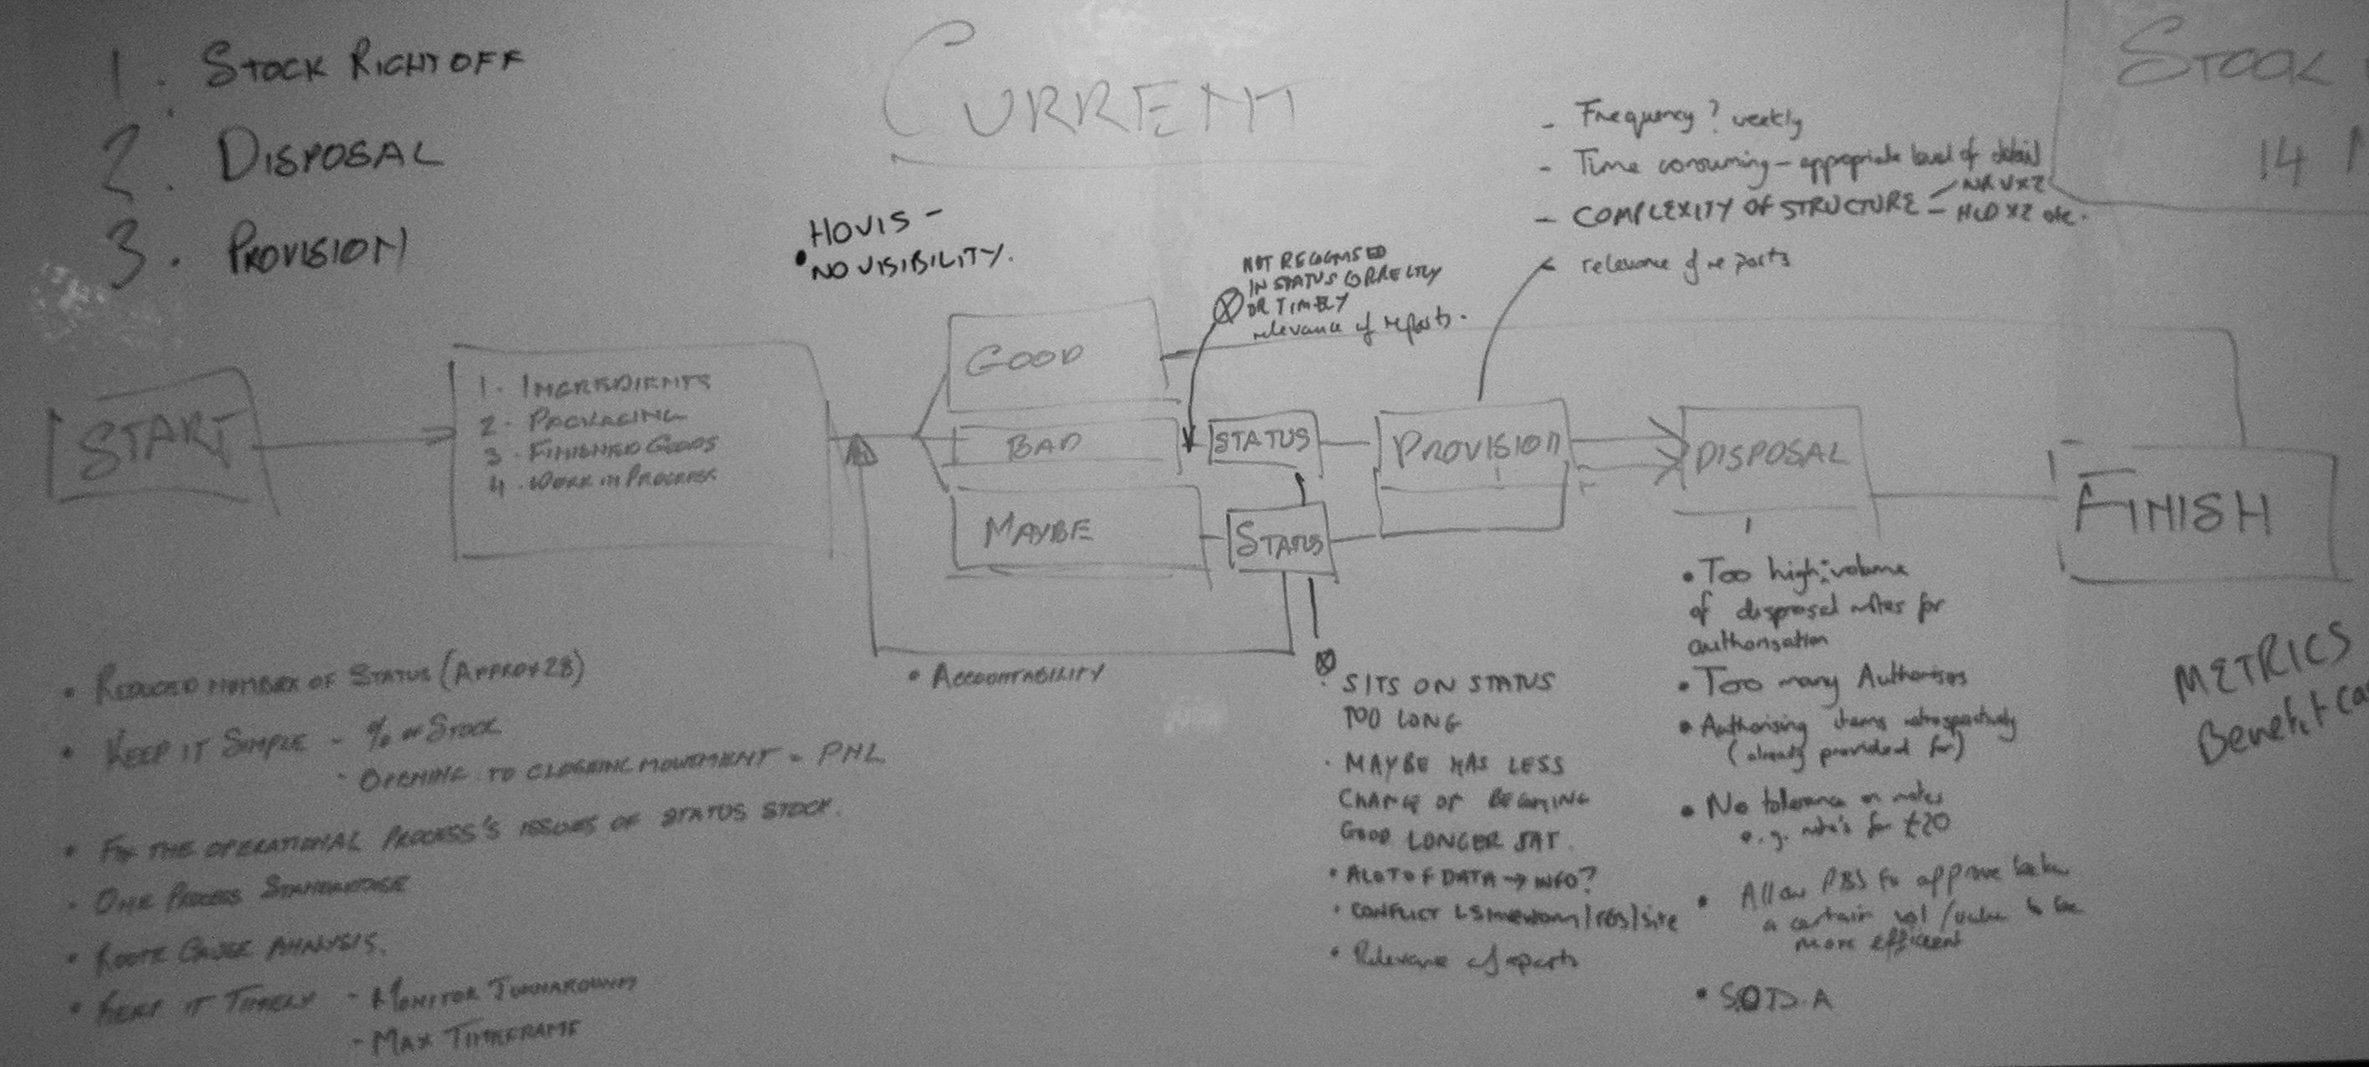 1. STOCK RIGHT OFF
2. DISPOSAL
3. PROVISION
CURRENT
STOCK
14
HOVIS -
• NO VISIBILITY.
- Frequency? weekly
- Time consuming - appropriate level of detail
- COMPLEXITY OF STRUCTURE - NRVXZ
- HLDXZ etc.
- relevance of reports
NOT RECOGNISED
IN STATUS CORRECTLY
OR TIMELY
relevance of reports.
START
1. INGREDIENTS
2. PACKAGING
3. FINISHED GOODS
4. WORK IN PROCESS
GOOD
BAD
MAYBE
STATUS
STATUS
PROVISION
DISPOSAL
FINISH
• ACCOUNTABILITY
• REDUCED NUMBER OF STATUS (APPROX 28)
• KEEP IT SIMPLE - % OF STOCK
- OPENING TO CLOSING MOVEMENT = PNL
• FIX THE OPERATIONAL PROCESS'S ISSUES OF STATUS STOCK.
• ONE PROCESS STANDARDISE
• ROOTE CAUSE ANALYSIS.
• KEEP IT TIMELY - MONITOR TURNAROUND
- MAX TIMEFRAME
• SITS ON STATUS
TOO LONG
• MAYBE HAS LESS
CHANCE OF BECOMING
GOOD LONGER SAT.
• ALOT OF DATA → INFO?
• CONFLICT /site
• Relevance of reports
• Too high volume
of disposal notes for
authorisation
• Too many Authorisers
• Authorising items retrospectively
(already provided for)
• No tolerance on notes
e.g. note's for £20
• Allow PBS to approve below
a certain vol/value to be
more efficient
• S.O.D.A
METRICS
Benefit